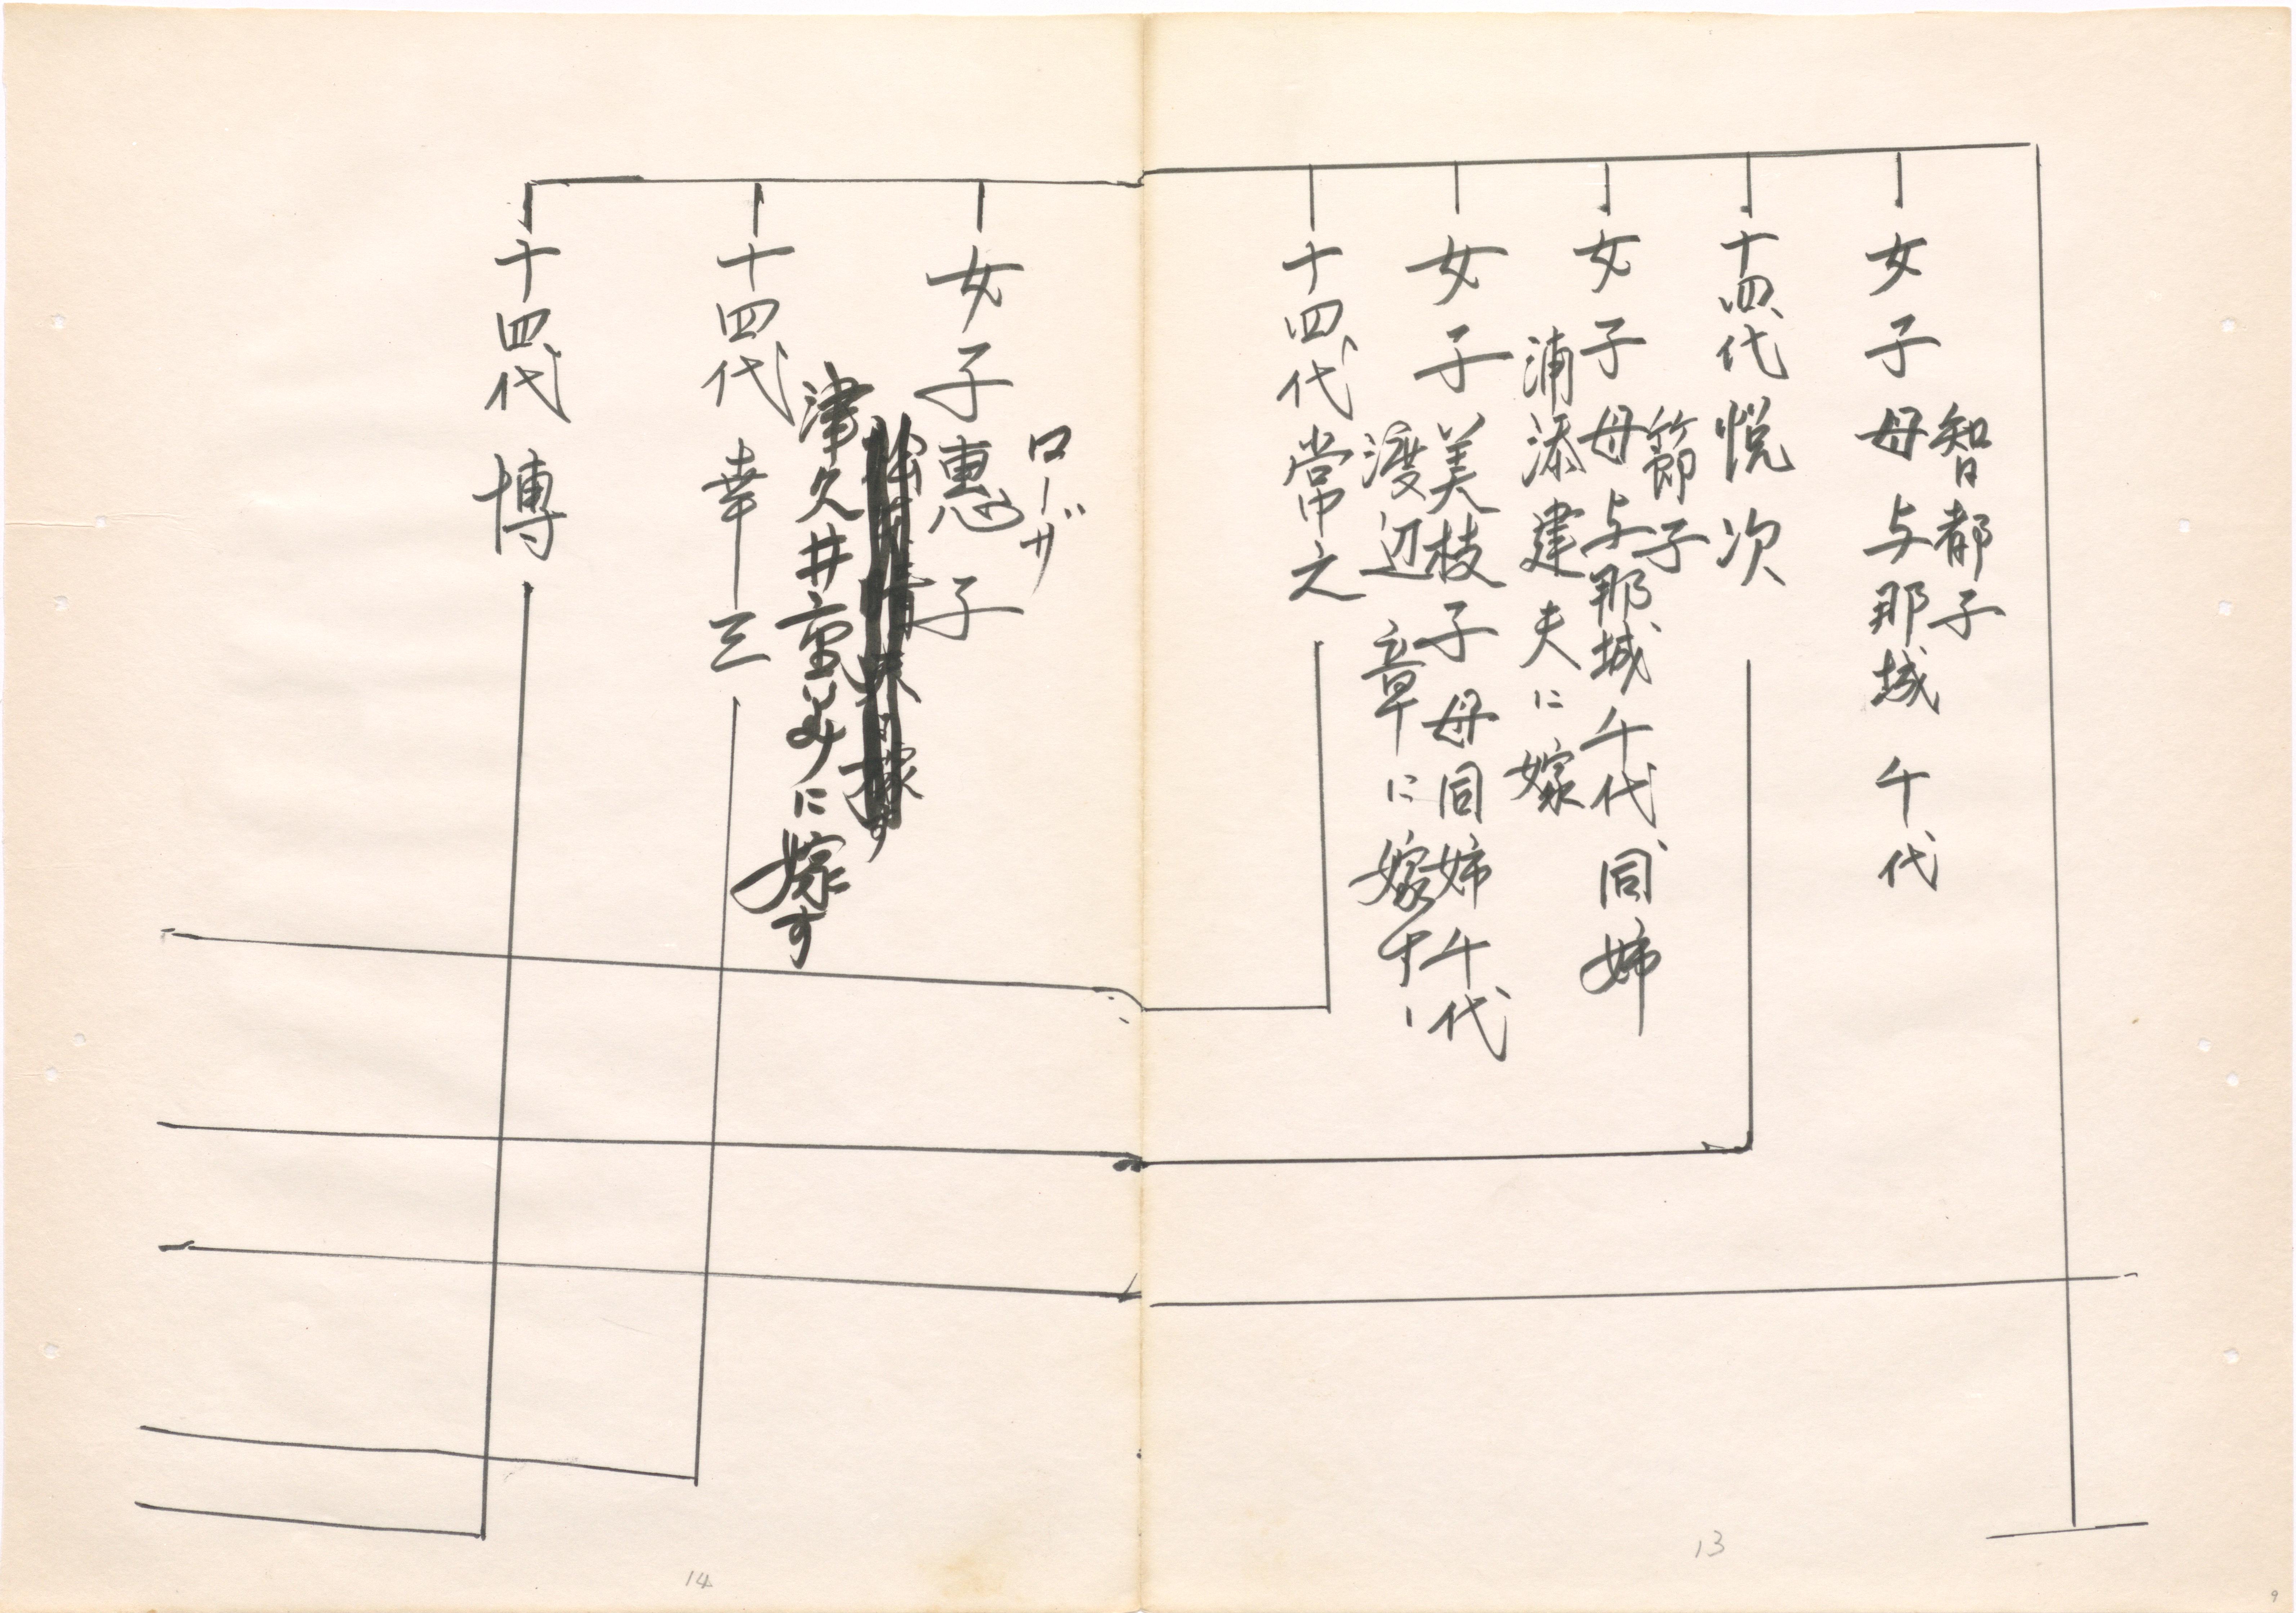 智都子
女子 母 与那城 千代
十四代 悦次
節子
女子 母 与那城 千代 同姉
浦添建夫に嫁
女子 美枝子 母 同姉 千代
渡辺 章に嫁す
十四代 常之
ローザ
女子 恵子
津久井 に嫁す
十四代 幸三
十四代 博
13
14
9